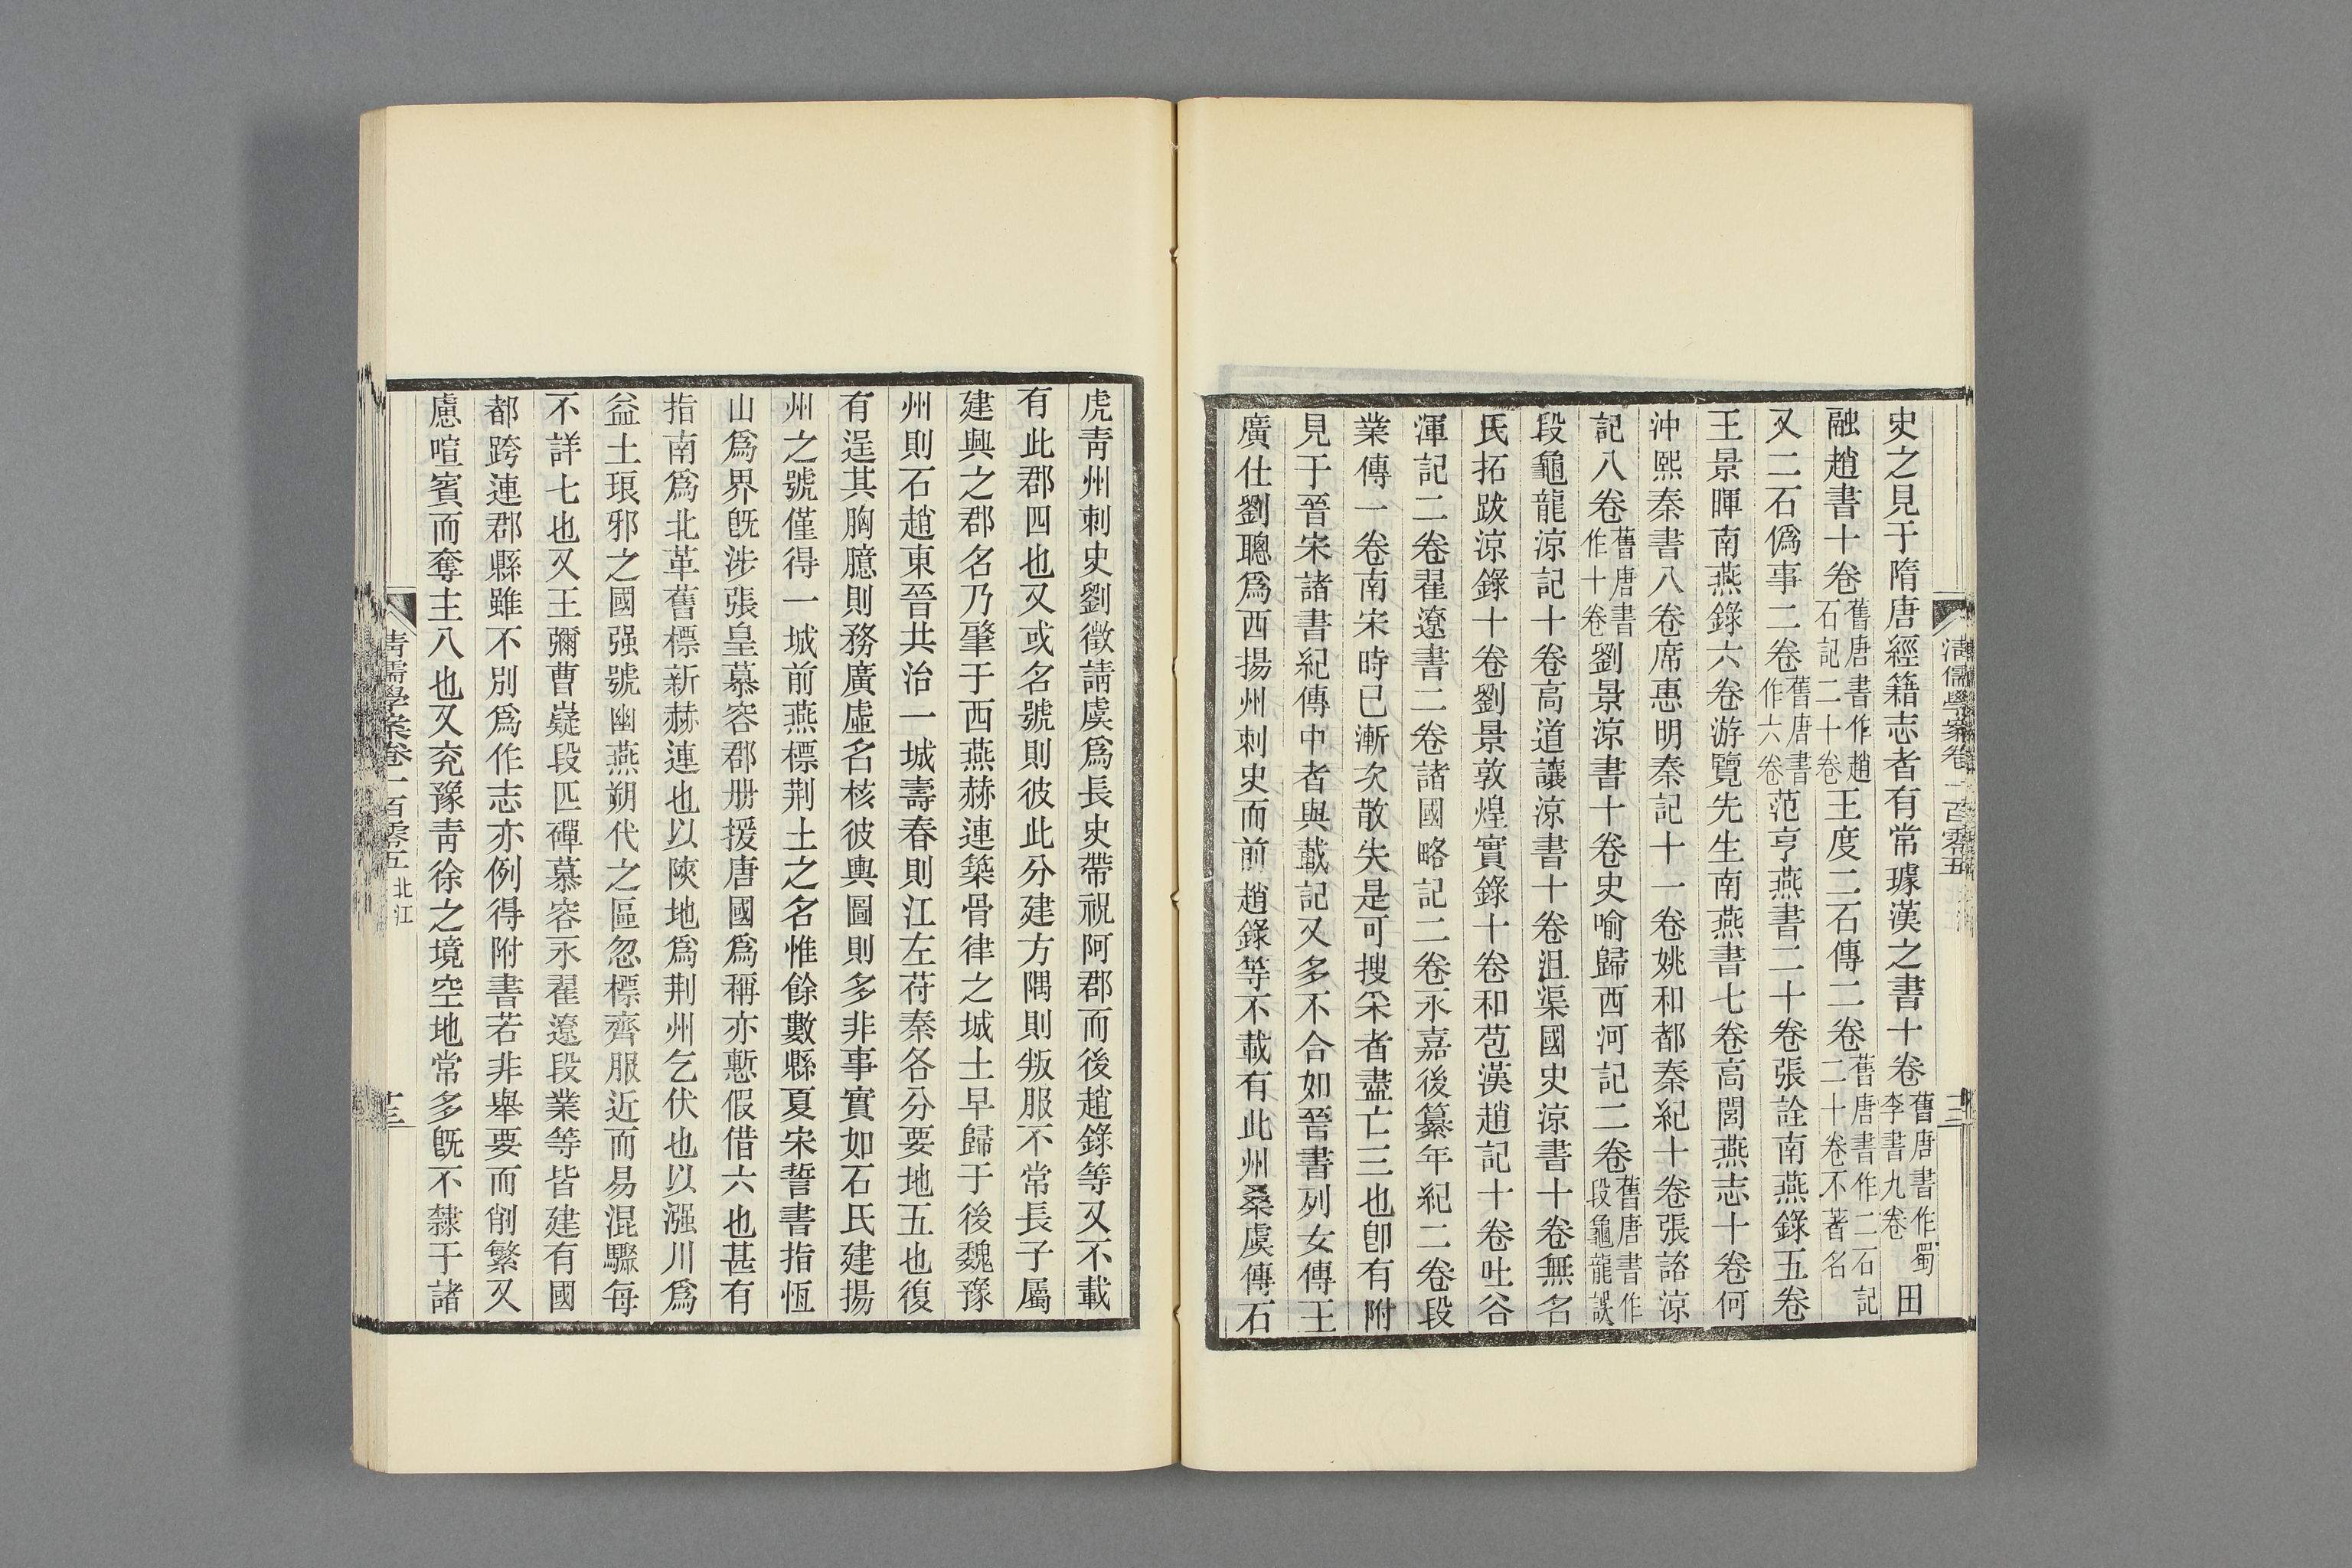 史之見于隋唐經籍志者有常璩漢之書十卷舊唐書作蜀李書九卷田
融趙書十卷舊唐書作趙石記二十卷王度二石傳二卷舊唐書作二石記二十卷不著名
又二石僞事二卷舊唐書作六卷范亨燕書二十卷張詮南燕錄五卷
王景暉南燕錄六卷游覽先生南燕書七卷高閭燕志十卷何
沖熙秦書八卷席惠明秦記十一卷姚和都秦紀十卷張諮涼
記八卷舊唐書作十卷劉景涼書十卷史喻歸西河記二卷舊唐書作段龜龍誤
段龜龍涼記十卷高道讓涼書十卷沮渠國史涼書十卷無名
氏拓跋涼錄十卷劉景敦煌實錄十卷和苞漢趙記十卷吐谷
渾記二卷翟遼書二卷諸國略記二卷永嘉後纂年紀二卷段
業傳一卷南宋時已漸次散失是可搜采者盡亡三也卽有附
見于晉宋諸書紀傳中者與載記又多不合如晉書列女傳王
廣仕劉聰爲西揚州刺史而前趙錄等不載有此州桑虞傳石
虎靑州刺史劉徵請虞爲長史帶祝阿郡而後趙錄等又不載
有此郡四也又或名號則彼此分建方隅則叛服不常長子屬
建興之郡名乃肇于西燕赫連築骨律之城土早歸于後魏豫
州則石趙東晉共治一城壽春則江左苻秦各分要地五也復
有逞其胸臆則務廣虛名核彼輿圖則多非事實如石氏建揚
州之號僅得一城前燕標荆土之名惟餘數縣夏宋誓書指恆
山爲界旣涉張皇慕容郡册援唐國爲稱亦慙假借六也甚有
指南爲北革舊標新赫連也以陝地爲荆州乞伏也以强川爲
益土琅邪之國强號幽燕朔代之區忽標齊服近而易混驟每
不詳七也又王彌曹嶷段匹磾慕容永翟遼段業等皆建有國
都跨連郡縣雖不別爲作志亦例得附書若非舉要而削繁又
慮喧賓而奪主八也又兖豫靑徐之境空地常多旣不隸于諸
清儒學案卷一百零五 北江